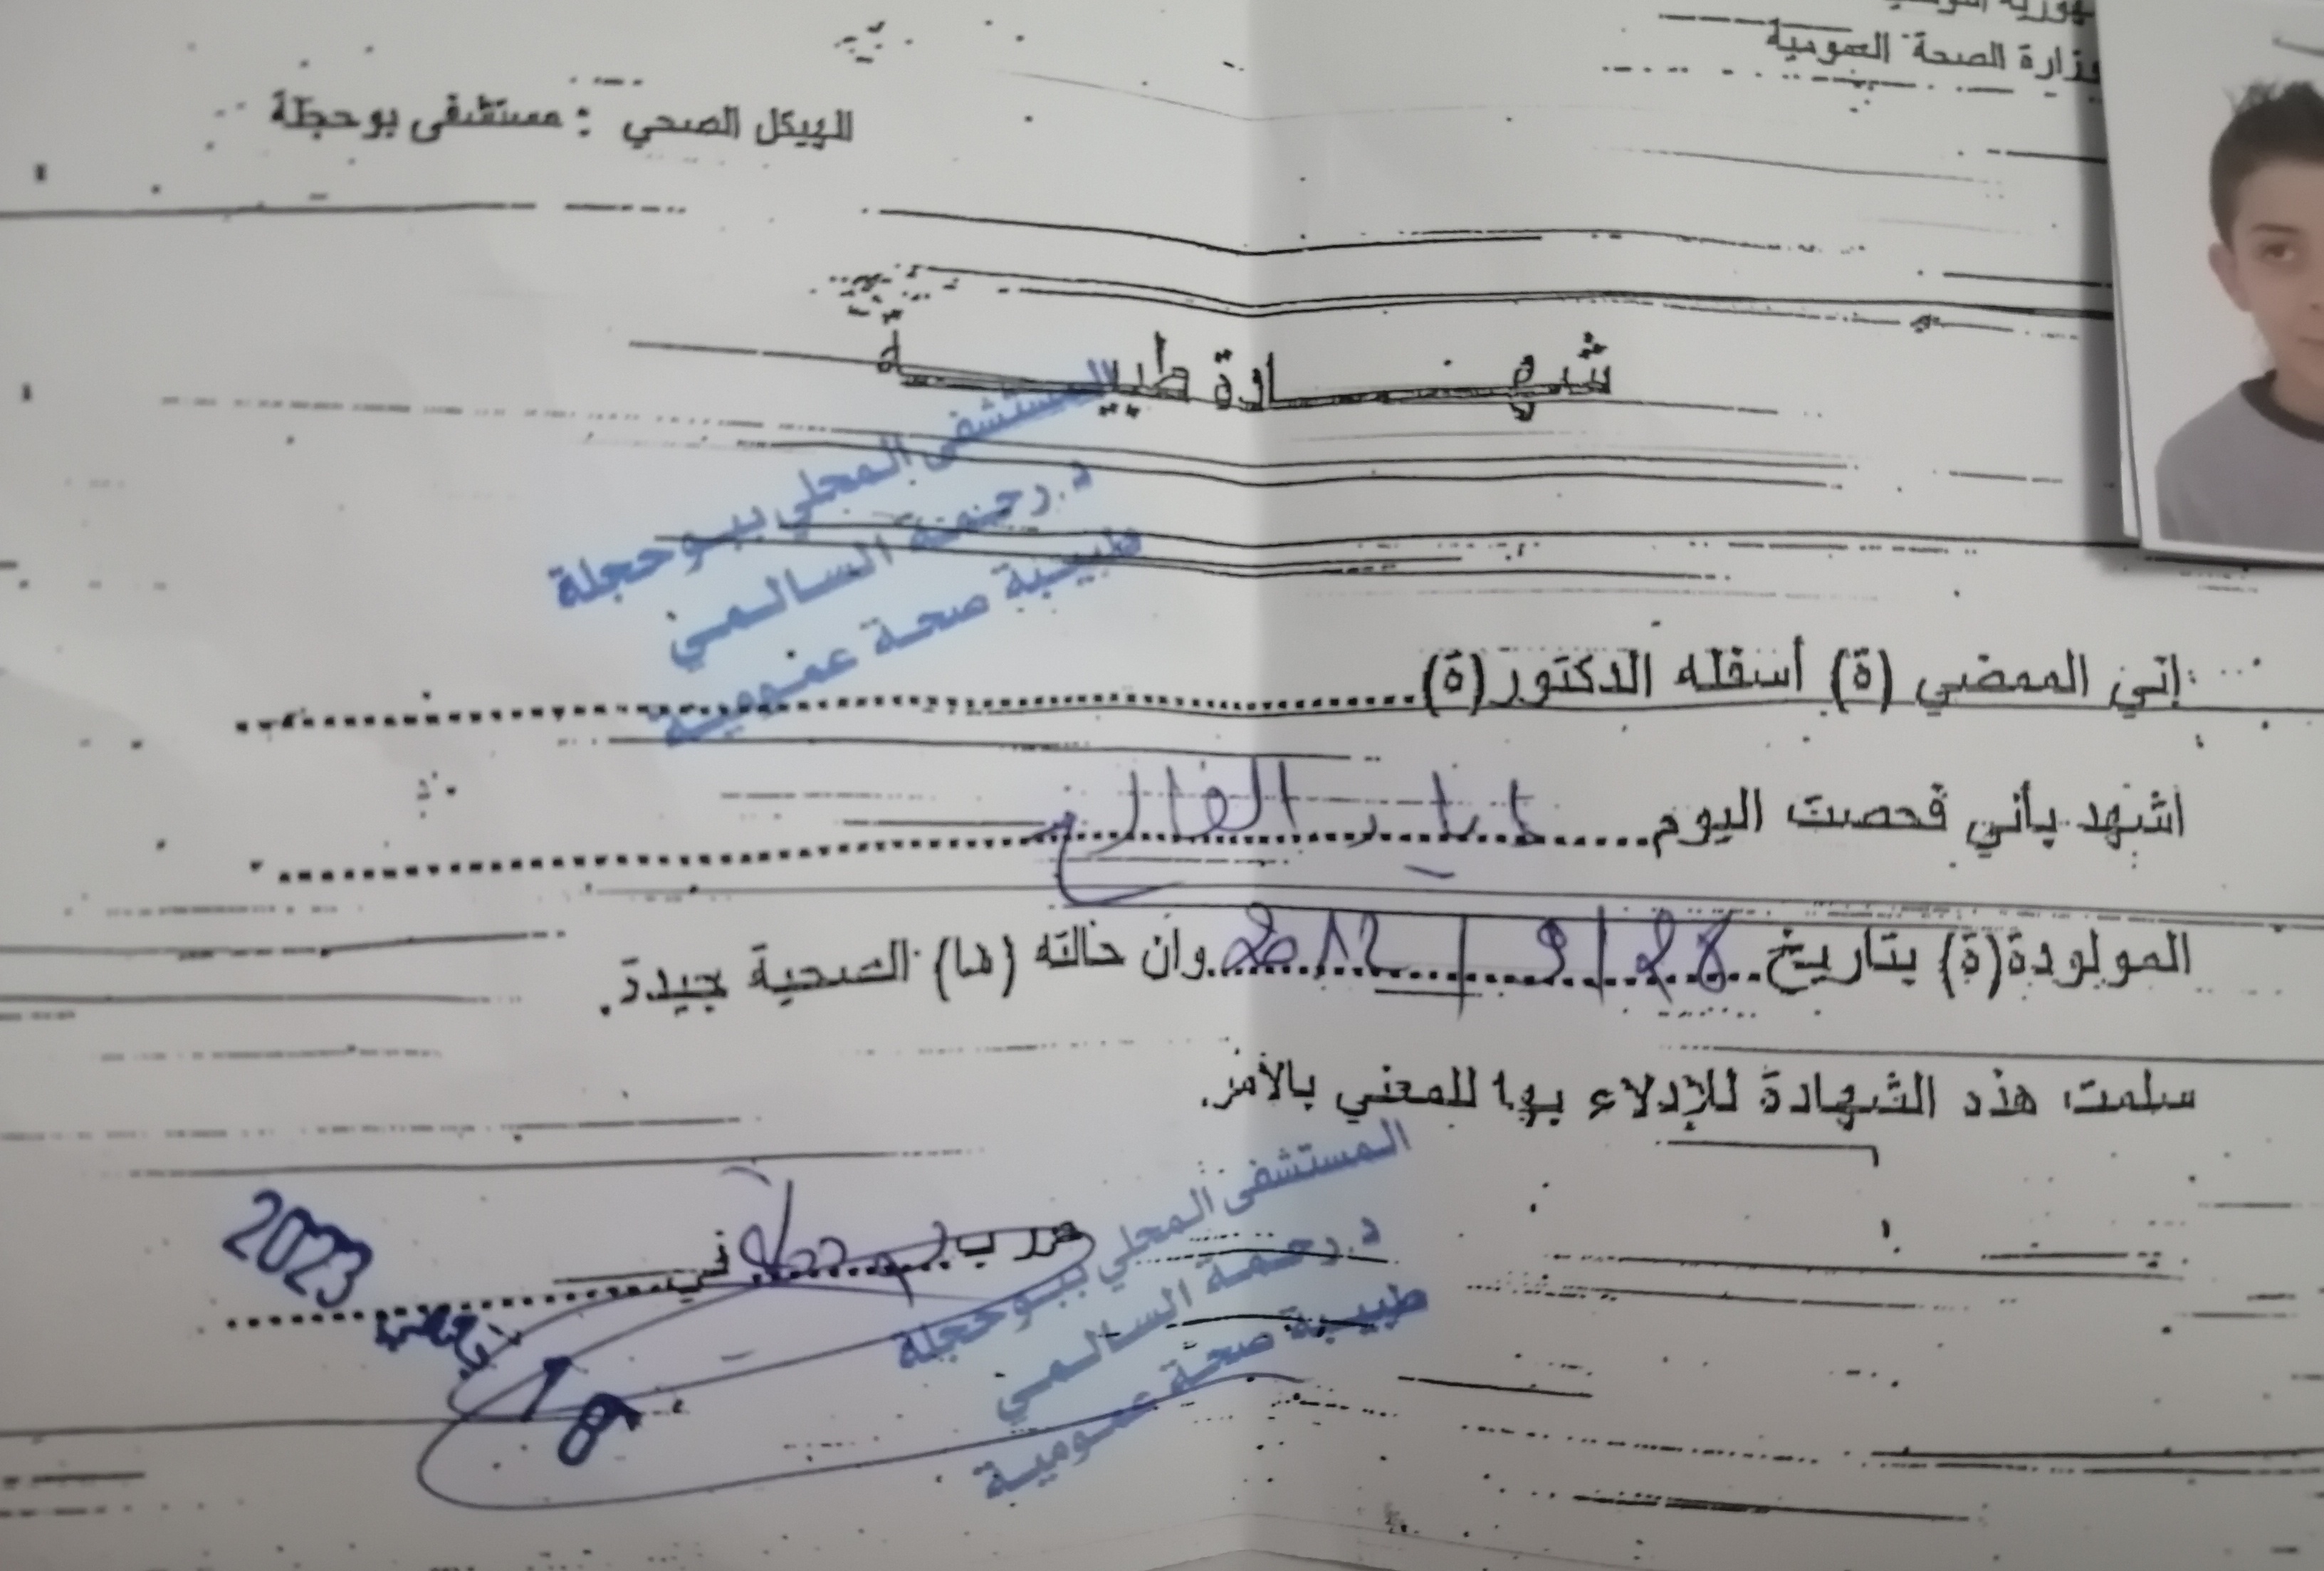 وزارة الصحة العمومية
الهيكل الصحي : مستشفى بوحجلة
شهـــــادة طبيـــــة
المستشفى المحلي ببوحجلة
د.رحمة السالمي
طبيبة صحة عمومية
إني الممضي (ة) أسفله الدكتور(ة)
اشهد بأني فحصت اليوم
المولودة(ة) بتاريخ وان حالته (ها) الصحية جيدة.
سلمت هذه الشهادة للإدلاء بها للمعني بالأمر.
حرر ب بوحجلة في 18 2023
المستشفى المحلي ببوحجلة
د.رحمة السالمي
طبيبة صحة عمومية